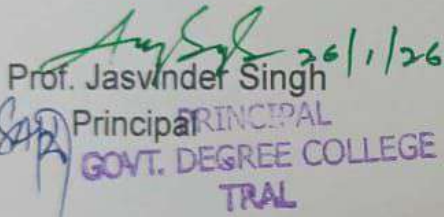 26/1/26
Prof. Jasvinder Singh
Principal PRINCIPAL
GOVT. DEGREE COLLEGE
TRAL